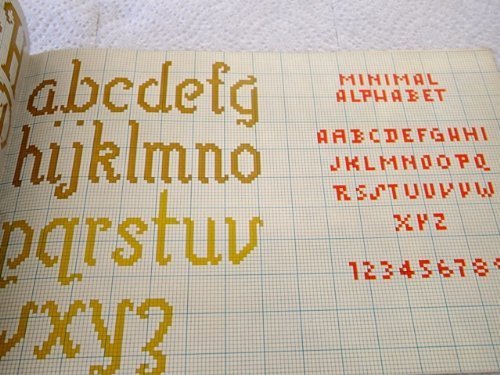 abcdefg
hijklmno
pqrstuv
wxyz
MINIMAL
ALPHABET
AABCDEFGHHI
JKLMNOOPQ
RSSTUUVVW
XYZ
123456789